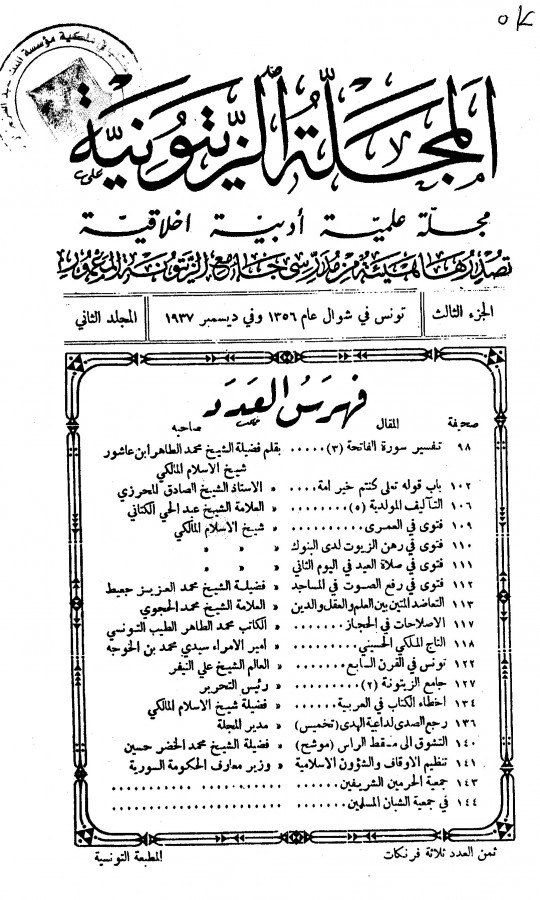 المجلة الزيتونية
مجلة علمية أدبية اخلاقية
تصدرها هيئة من مدرسي جامع الزيتونة المعمور
الجزء الثالث
تونس في شوال عام ١٣٥٦ وفي ديسمبر ١٩٣٧
المجلد الثاني
فهرس العدد
صحيفة المقال صاحبه
٩٨ تفسير سورة الفاتحة (٣) ..... بقلم فضيلة الشيخ محمد الطاهر ابن عاشور
شيخ الاسلام المالكي
١٠٢ باب قوله تعلى كنتم خير امة.... « الاستاذ الشيخ الصادق المحرزي
١٠٦ التآليف المولدية (٥) ........ « العلامة الشيخ عبد الحي الكتاني
١٠٩ فتوى في العمرى .......... « شيخ الاسلام المالكي
١١٠ فتوى في رهن الزيوت لدى البنوك « » »
١١١ فتوى في صلاة العيد في اليوم الثاني « » »
١١٢ فتوى في رفع الصوت في المساجد « فضيلة الشيخ محمد العزيز جعيط
١١٣ التعاضد المتين بين العلم والعقل والدين « العلامة الشيخ محمد الحجوي
١١٧ الاصلاحات في الحجاز ....... « الكاتب محمد الطاهر الطيب التونسي
١١٨ التاج الملكي الحسيني ....... « أمير الامراء سيدي محمد بن الخوجه
١٢٢ تونس في القرن السابع ....... « العالم الشيخ علي النيفر
١٢٧ جامع الزيتونة (٢) ......... « رئيس التحرير
١٣٤ اخطاء الكتاب في العربية ..... « فضيلة شيخ الاسلام المالكي
١٣٦ رجع الصدى لداعية الهدى (تخميس) « مدير المجلة
١٤٠ التشوق الى مسقط الراس (موشح) « فضيلة الشيخ محمد الخضر حسين
١٤١ تنظيم الاوقاف والشؤون الاسلامية « وزير معارف الحكومة السورية
١٤٣ جمعية الحرمين الشريفين .....
١٤٤ في جمعية الشبان المسلمين ....
ثمن العدد ثلاثة فرنكات
المطبعة التونسية